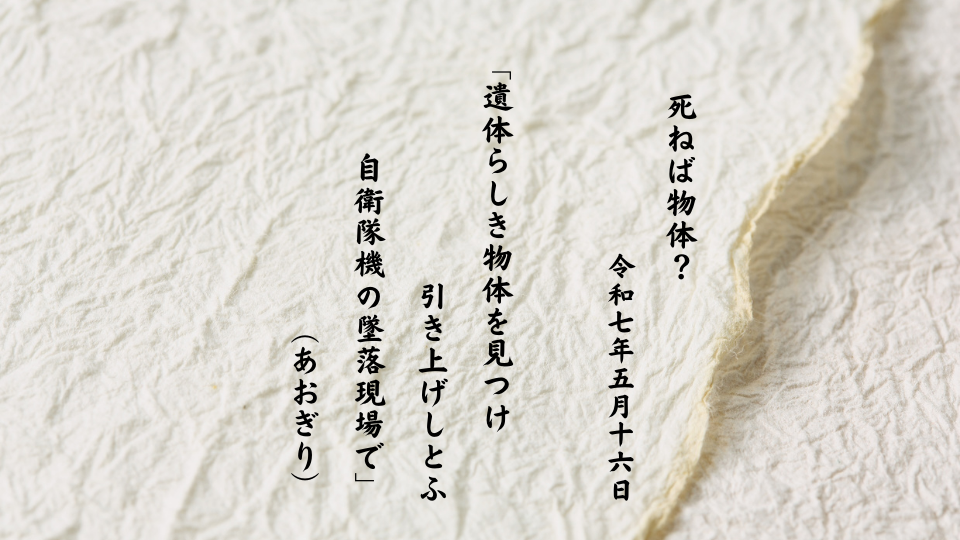 死ねば物体？
令和七年五月十六日
「遺体らしき物体を見つけ
引き上げしとふ
自衛隊機の墜落現場で」
（あおぎり）